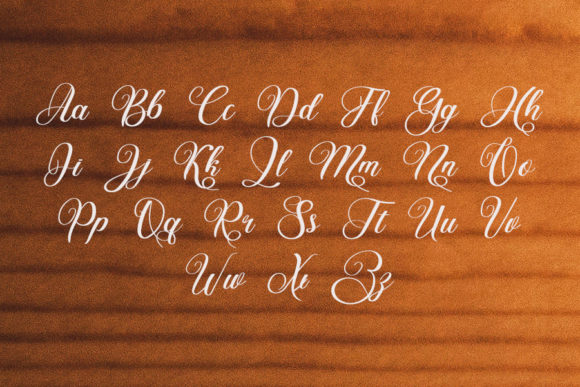 Aa Bb Cc Dd Ff Gg Hh
Ii Jj Kk Ll Mm Nn Oo
Pp Qq Rr Ss Tt Uu Vv
Ww Xx Zz